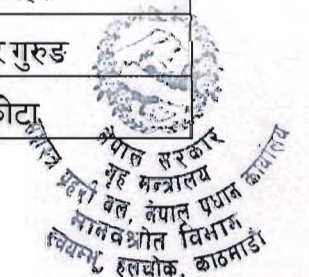 गुरुङ
नेपाल सरकार
गृह मन्त्रालय
सशस्त्र प्रहरी बल, नेपाल प्रधान कार्यालय
मानवश्रोत विभाग
स्वयम्भू, हलचोक, काठमाडौं